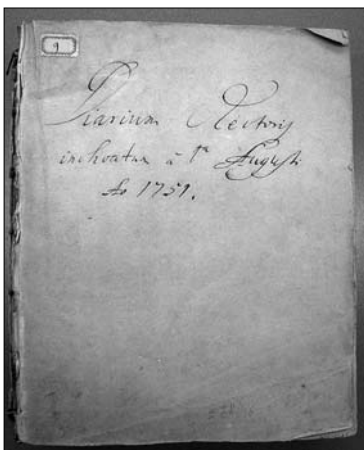 9
Diarium Rectoris
inchoatum à 1ª Augusti
Ao 1751.